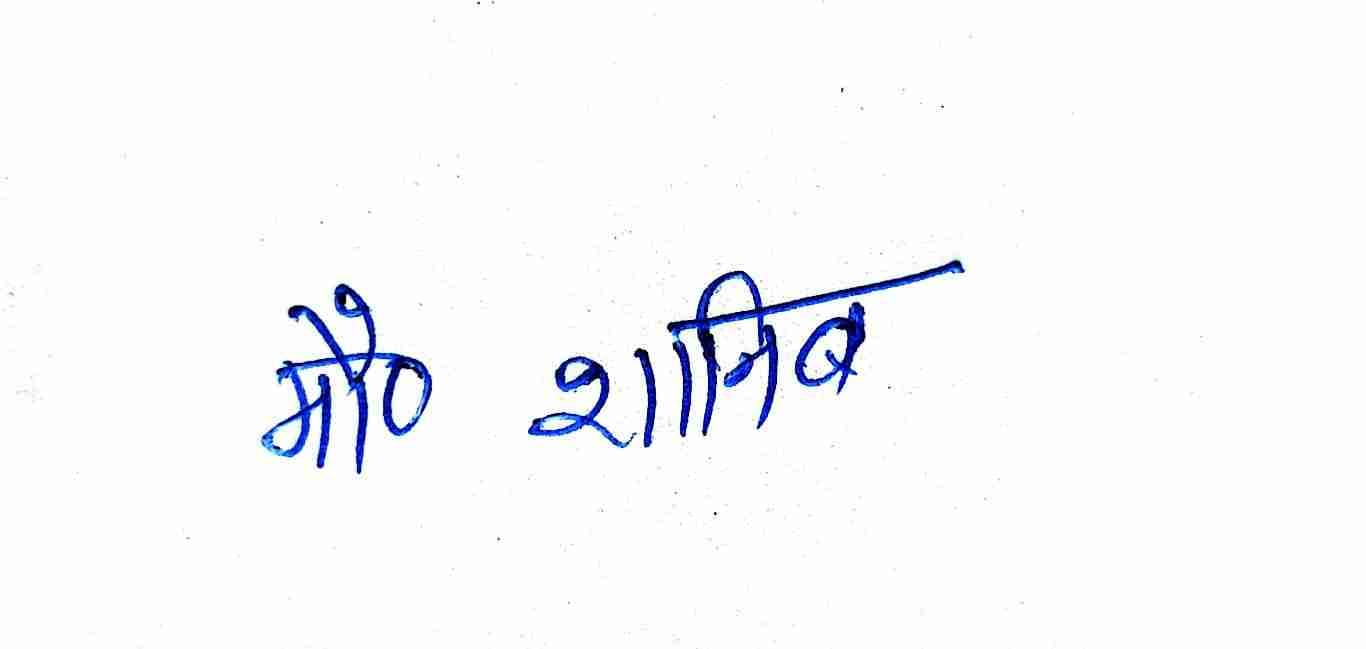 मौ० शानिब